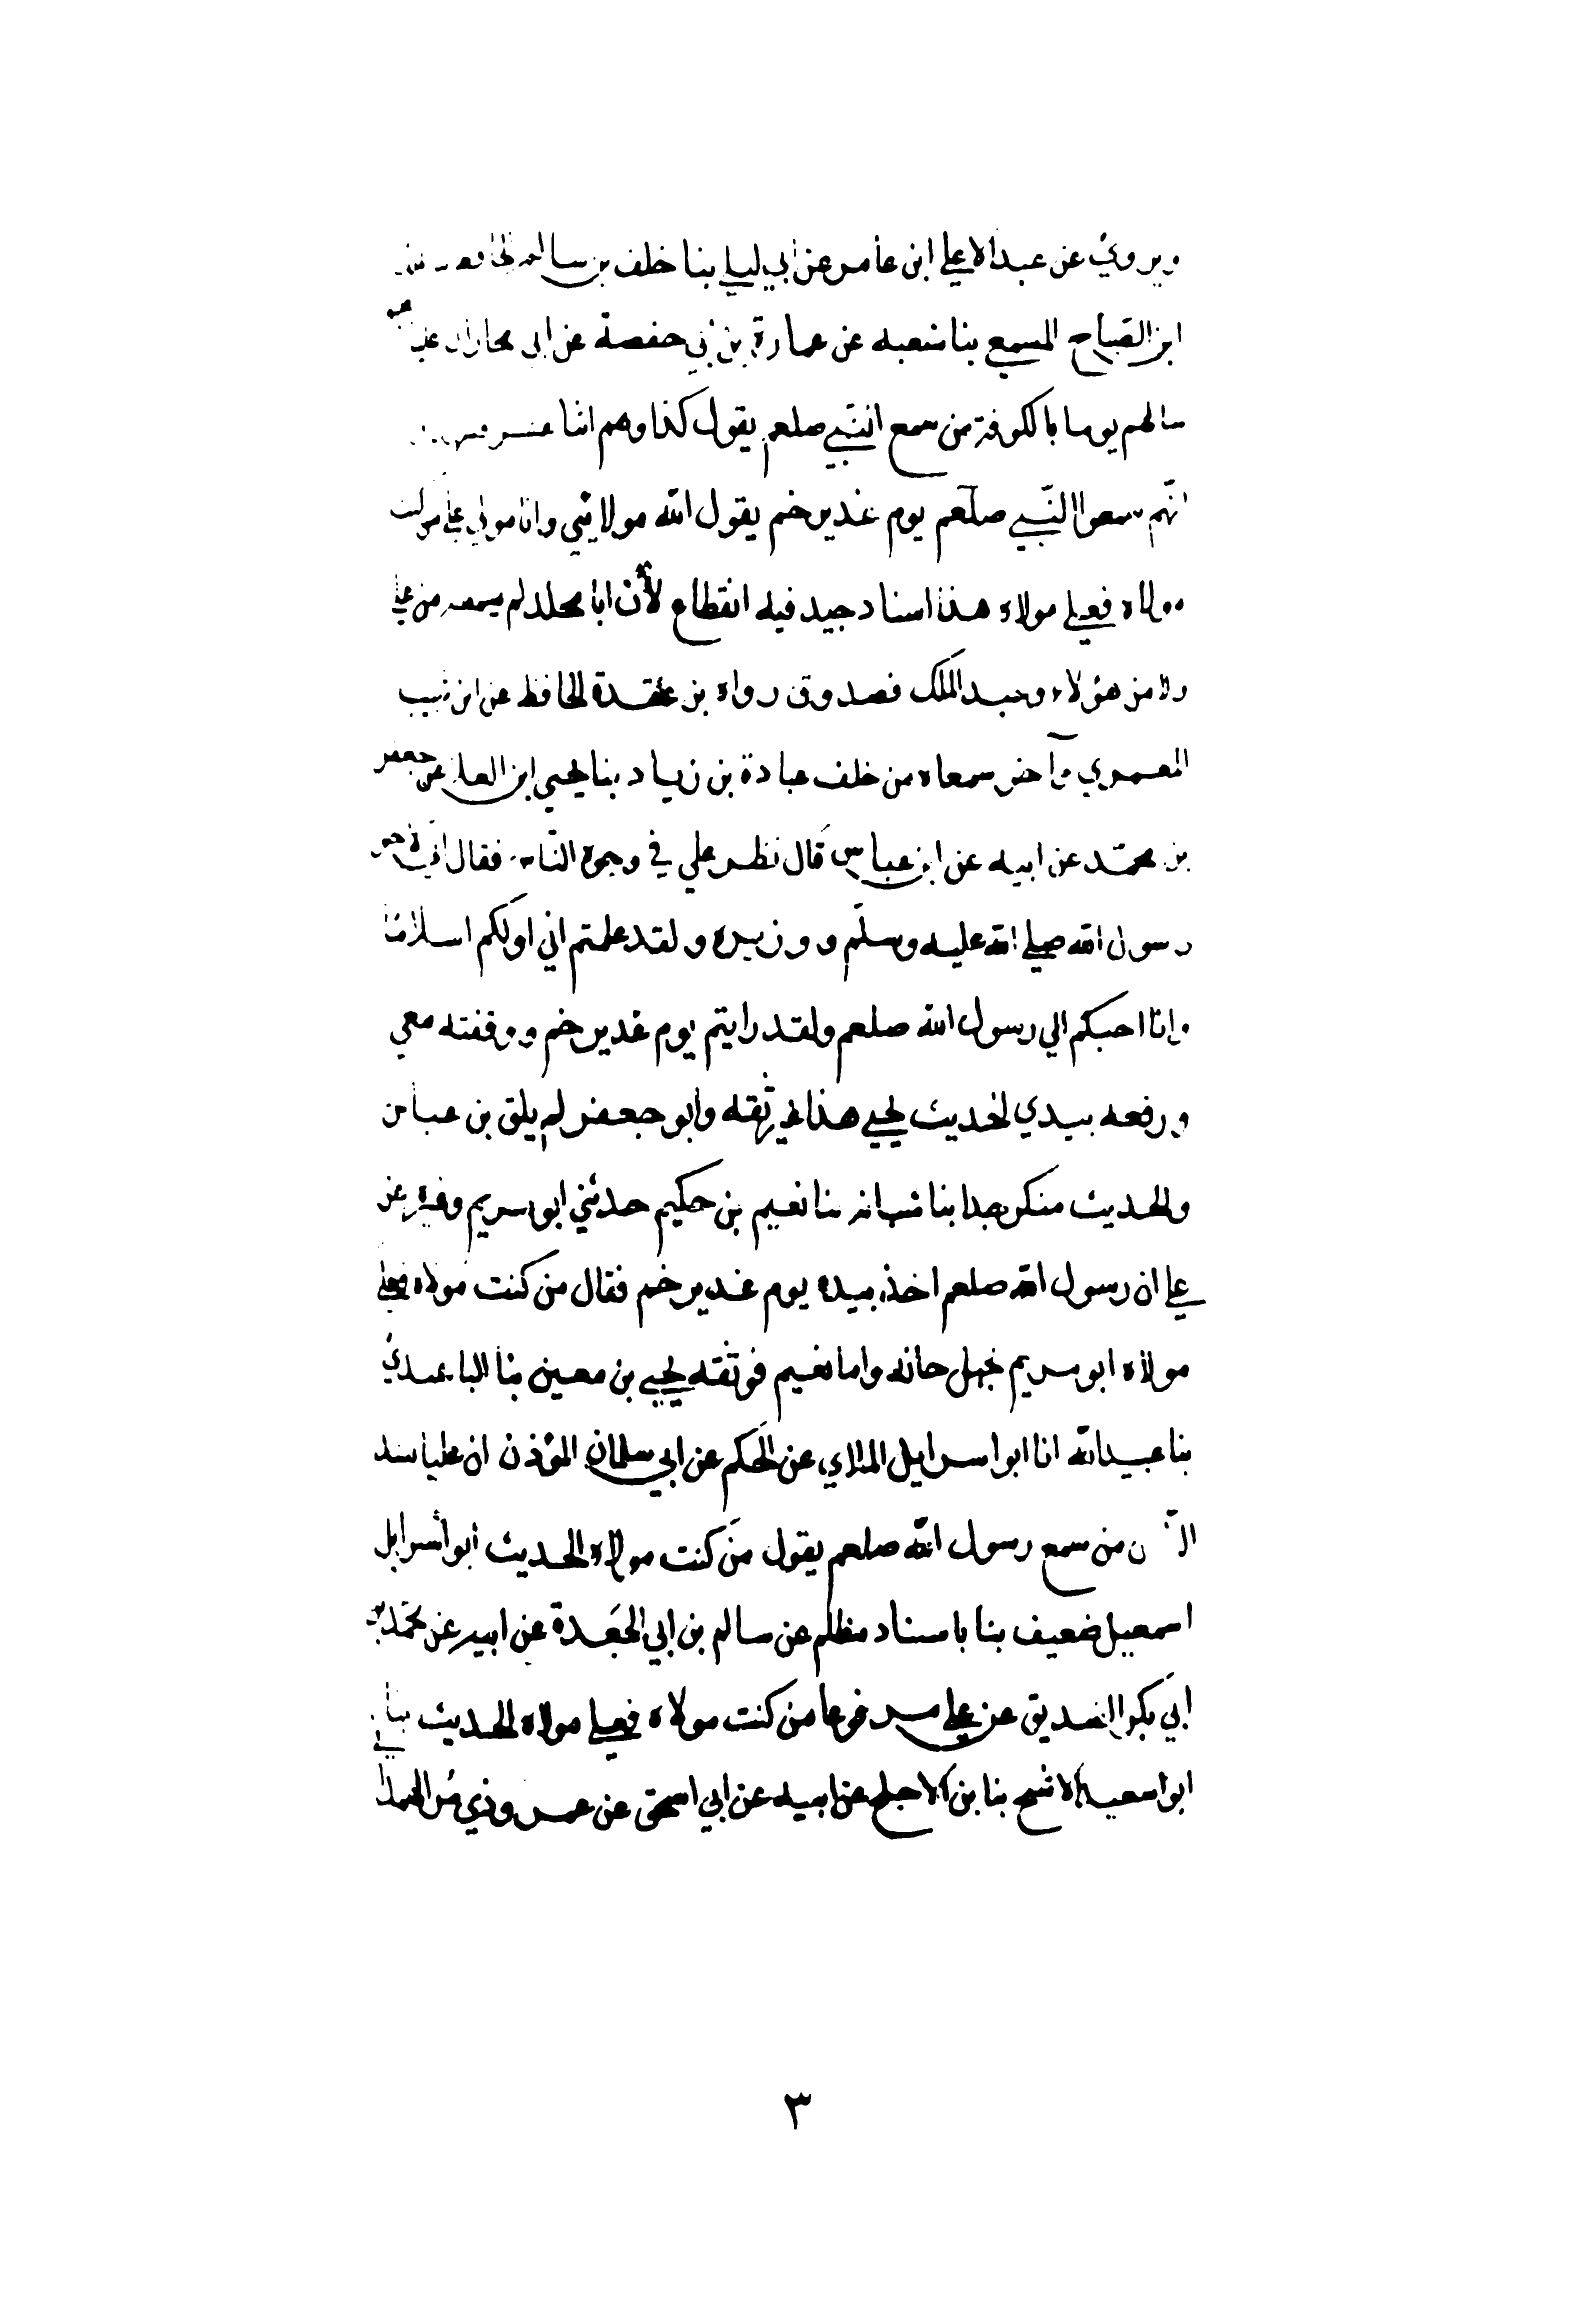 ويروي عن عبد الاعلي ابن عامر عن ابي ليلي بنا خلف بن سالم
ابن الصباح المسمعي بنا شعبه عن عمارة بن ابي حفصة عن ابي
سالهم يوما بالكوفة من سمع النبي صلعم يقول كذا وهم اثنا عشر
انهم سمعوا النبي صلعم يوم غدير خم يقول الله مولايي وانا مولي علي من كنت
مولاه فعلي مولاه هذا اسناد جيد فيه انقطاع لأن ابا مجلد لم يسمعه من علي
ولا من هؤلاء وعبد الملك فصدوق رواه بن عقدة الحافظ عن ابن شبيب
المعمري وآخر سمعاه من خلف عبادة بن زياد بنا يحيي ابن العلا عن جعفر
بن محمد عن ابيه عن ابن عباس قال نظر علي في وجوه الناس فقال اني لاخو
رسول الله صلي الله عليه وسلم و وزيره ولقد علمتم اني اولكم اسلاما
وانا احبكم الي رسول الله صلعم ولقد رايتم يوم غدير خم ووقفته معي
ورفعه بيدي الحديث يحيي هذا غير ثقه وابو جعفر لم يلق بن عباس
والحديث منكر جدا بنا شبانه بنا نعيم بن حكيم حدثني ابو مريم وغيره عن
علي ان رسول الله صلعم اخذ بيده يوم غدير خم فقال من كنت مولاه فعلي
مولاه ابو مريم نجهل حاله واما نعيم فوثقه يحيي بن معين بنا
بنا عبيد الله انا ابوا سرايل الملاي عن الحكم عن ابي سلمان المؤذن ان عليا نشد
من سمع رسول الله صلعم يقول من كنت مولاه الحديث ابو أسرايل
اسمعيل ضعيف بنا باسناد مظلم عن سالم بن ابي الجعدة عن ابيه عن محمد بن
ابي بكر الصديق عن علي مرفوعا من كنت مولاه فعلي مولاه الحديث بنا
ابوا سعيد الاشج بنا بن الاجلح عن ابيه عن ابي اسحق عن عمر وذي مر الهمداني
٣